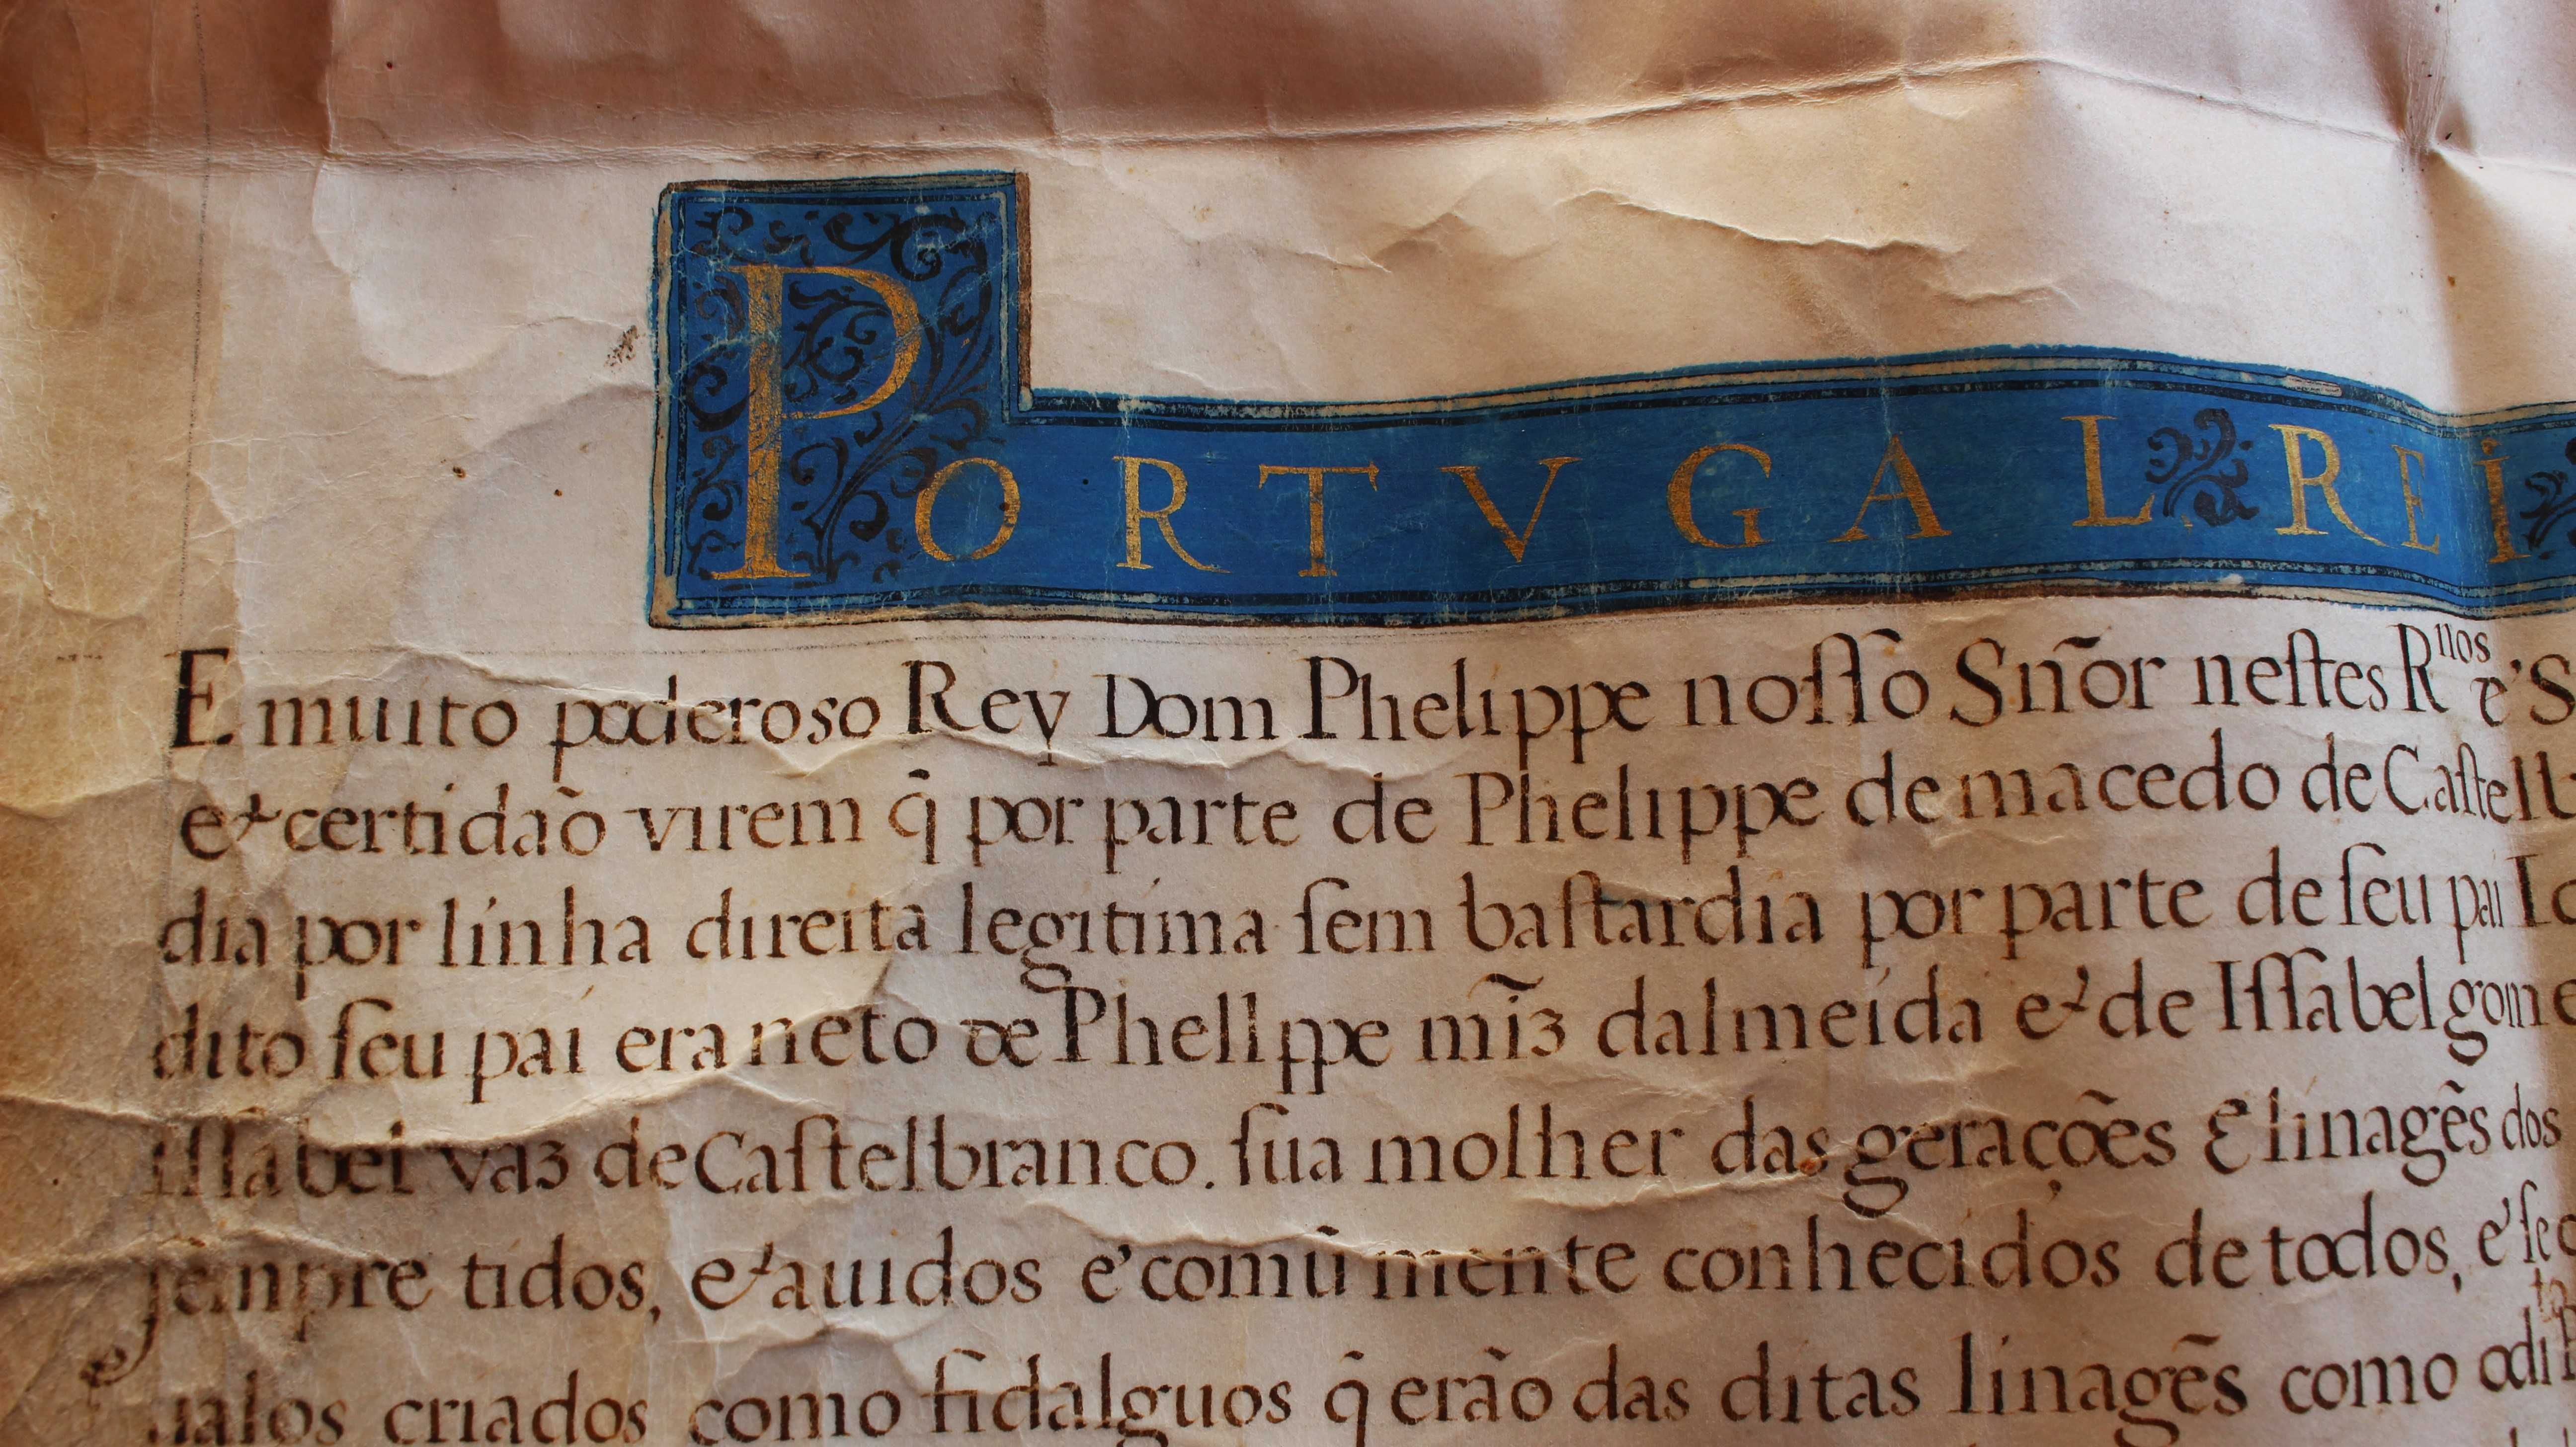 PORTVGAL REI
E muito poderoso Rey Dom Phelippe noſſo Sñor neſtes Rnos e S
e certidaõ virem q̃ por parte de Phelippe de macedo de Caſtelb
dia por linha direita legitima ſem baſtardia por parte de ſeu pai Io
dito ſeu pai era neto de Phelippe mĩz dalmeida e de Iſſabel gome
Iſſabel vaz de Caſtelbranco. ſua molher das gerações E linagẽs dos
ſempre tidos, e auidos e comũmente conhecidos de todos, e ſe
ualos criados como fidalguos q̃ erão das ditas linagẽs como o dito